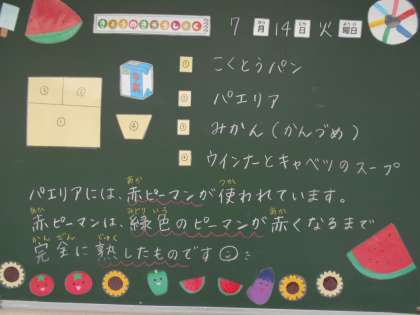 きょうのきゅうしょく
7月14日火曜日
① こくとうパン
② パエリア
③ みかん(かんづめ)
④ ウインナーとキャベツのスープ
③ ②
①
④
パエリアには、赤ピーマンが使われています。
赤ピーマンは、緑色のピーマンが赤くなるまで
完全に熟したものです